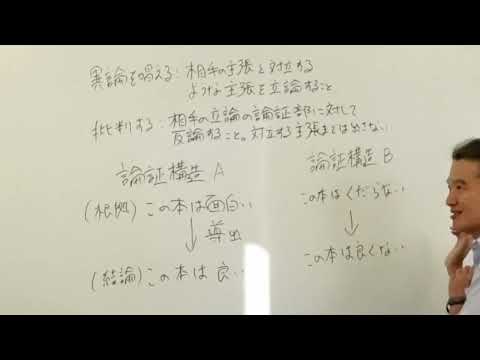 異論を唱える：相手の主張と対立する
ような主張を立論すること
批判する：相手の立論の論証部に対して
反論すること。対立する主張までは出さない。
論証構造 A
論証構造 B
(根拠) この本は面白い
この本はくだらない
↓ 導出
↓
(結論) この本は良い
この本は良くない